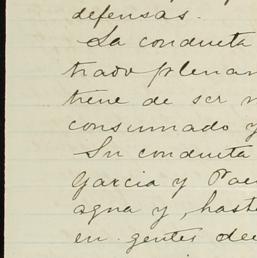 defensas.
La conducta
trado plenam
tiene de ser
consumado y
Su conducta
Garcia y Pae
agua y, hast
en gentes de